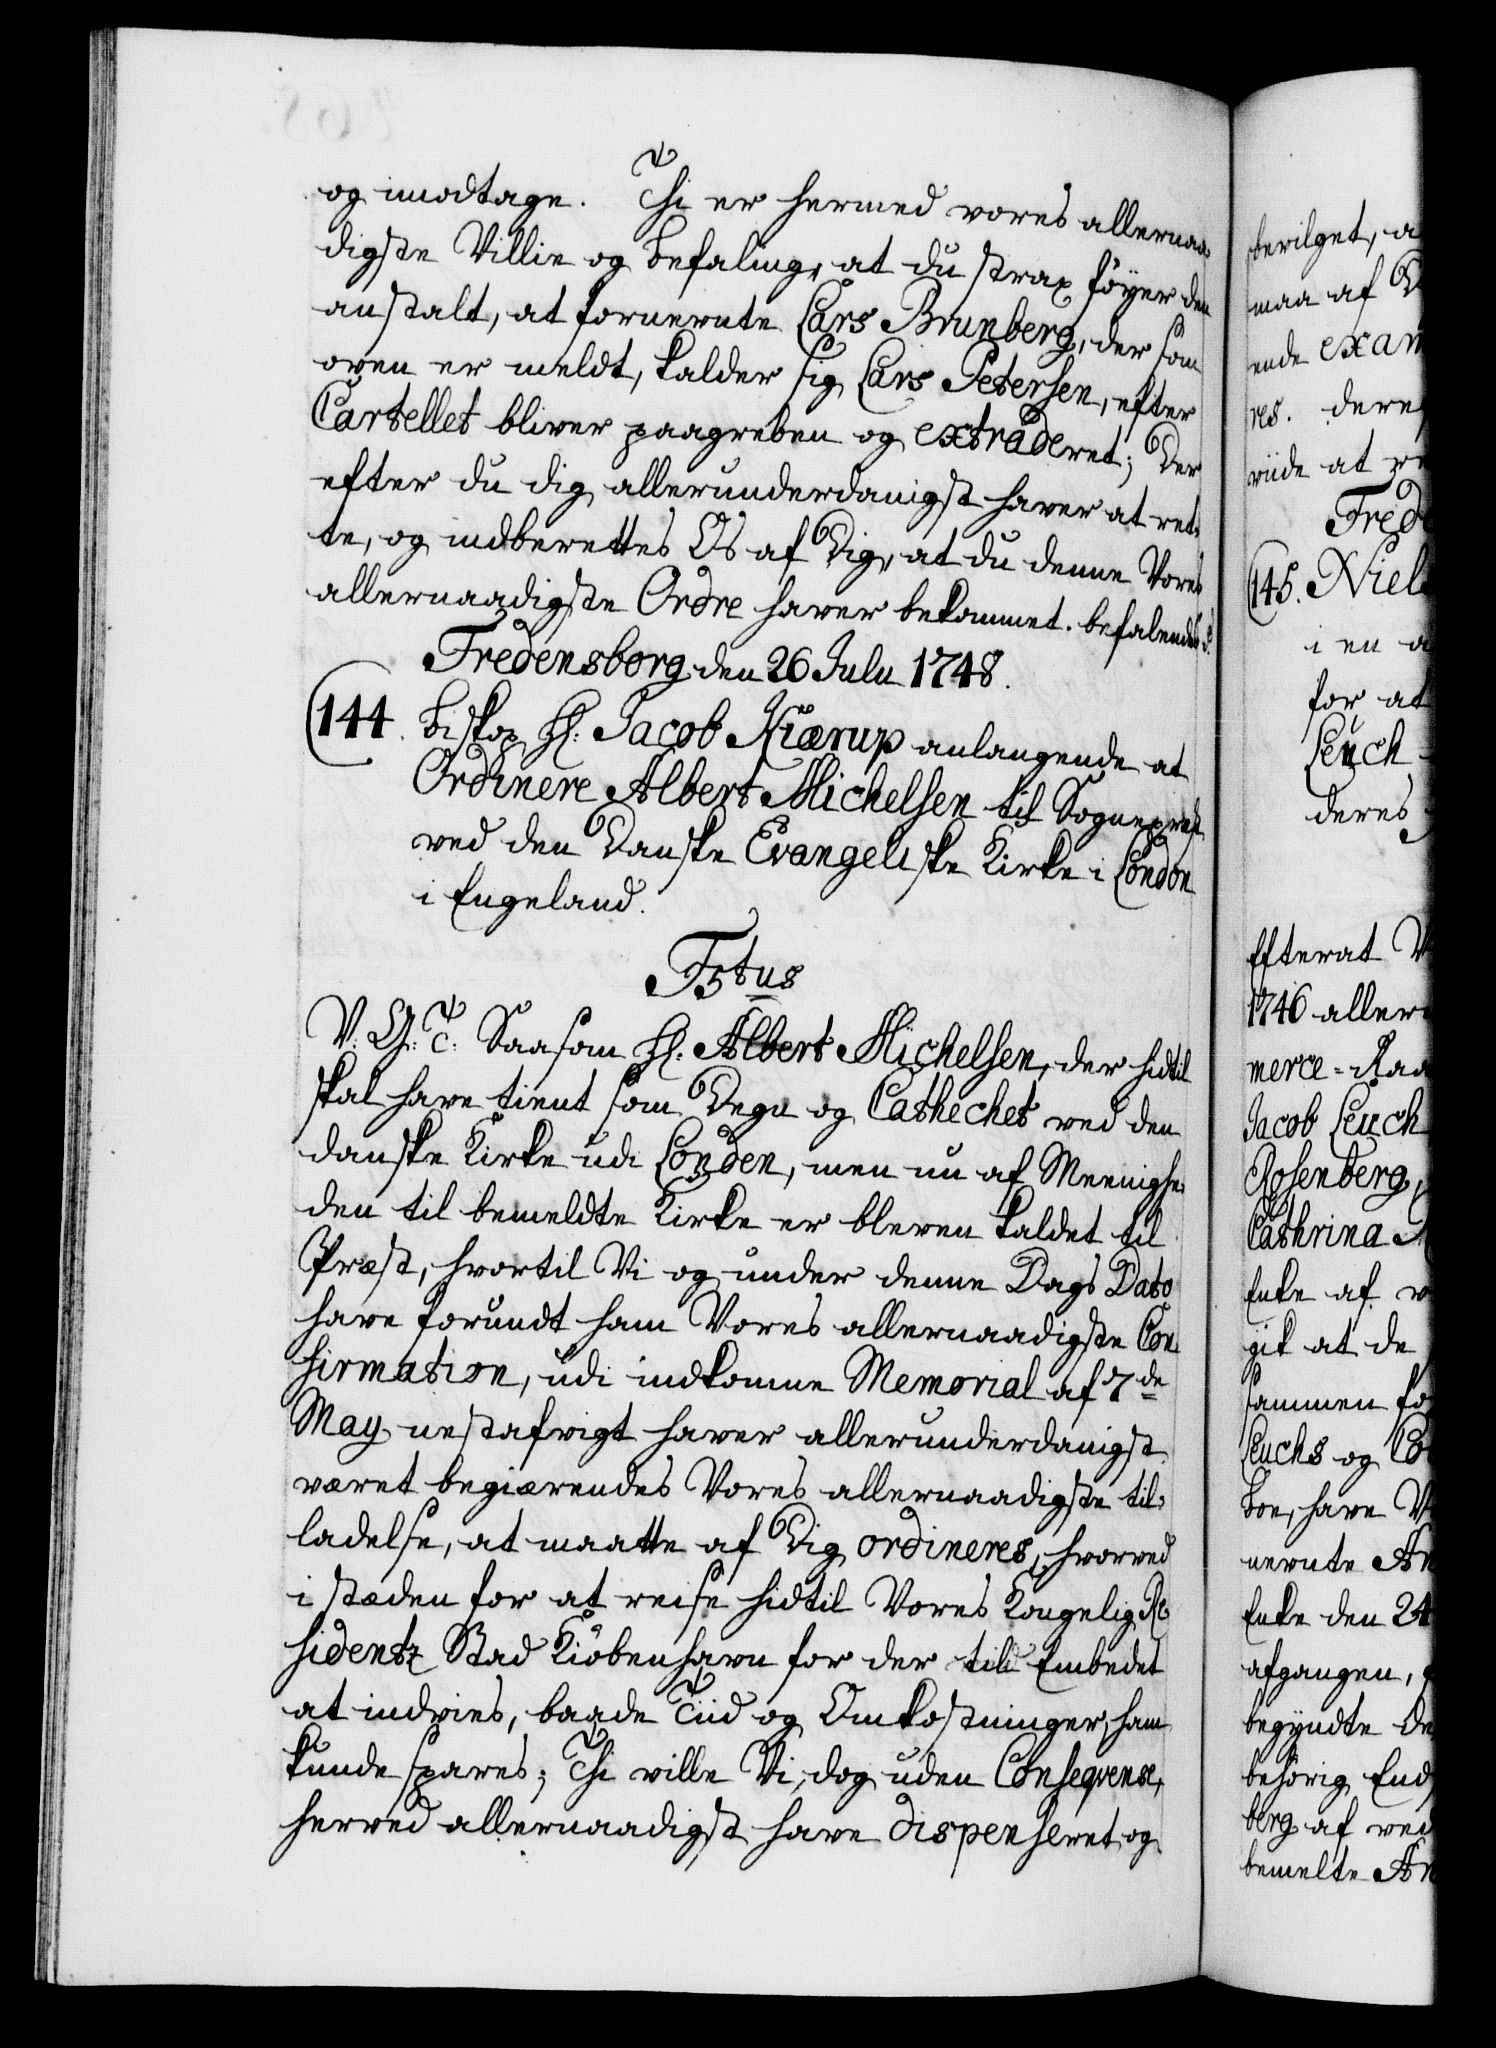 og imodtage. Thi er hermed vores allernaa-
digste Villie og befaling, at du strax föyer den
anstalt, at fornevnte Lars Brunberg, der som
oven er meldt, kalder sig Lars Petersen, efter
Cartellet bliver paagreben og extraderet; Der
efter du dig allerunderdanigst haver at ret-
te, og indberettes Os af Dig, at du denne Vores
allernaadigste Ordre haver bekommet. befalendes
Fredensborg den 26 July 1748.
144. Biskop H: Jacob Kiærup anlangende at
Ordinere Albert Michelsen til Sognepræst
ved den Danske Evangeliske Kirke i London
i Engeland.
F5tus
V: G: T: Saasom H: Albert Michelsen, der hidtil
skal have tient som Degn og Cathechet ved den
danske Kirke udi London, men nu af Meenighe-
den til bemeldte Kirke er bleven kaldet til
Præst, hvortil Vi og under denne Dags Dato
have forundt ham Vores allernaadigste Con-
firmation, udi indkomne Memorial af 7de
May nestafvigt haver allerunderdanigst
været begiærendes Vores allernaadigste til-
ladelse, at maatte af Dig ordineres, hvorved
i stæden for at reise hidtil Vores Kongelig Re-
sidentz Stad Kiöbenhavn for der til Embedet
at indvies, baade Tiid og Omkostninger ham
kunde spares; Thi ville Vi, dog uden Conseqvense,
herved allernaadigst have dispenseret og
bevilget, a
maa af D
ende exam
res. dere
viide at re
Frede
145. Niel
i en a
for at
Leuch
deres
Efterat V
1746 aller
merce-Raa
Jacob Leuch
Rosenberg,
Cathrina
Enke af v
gik at de
sammen fo
Leuchs og Co
boe, have V
nevnte An
Enke den 24
afgangen,
begyndte de
behörig End
berg af ved
bemelte An